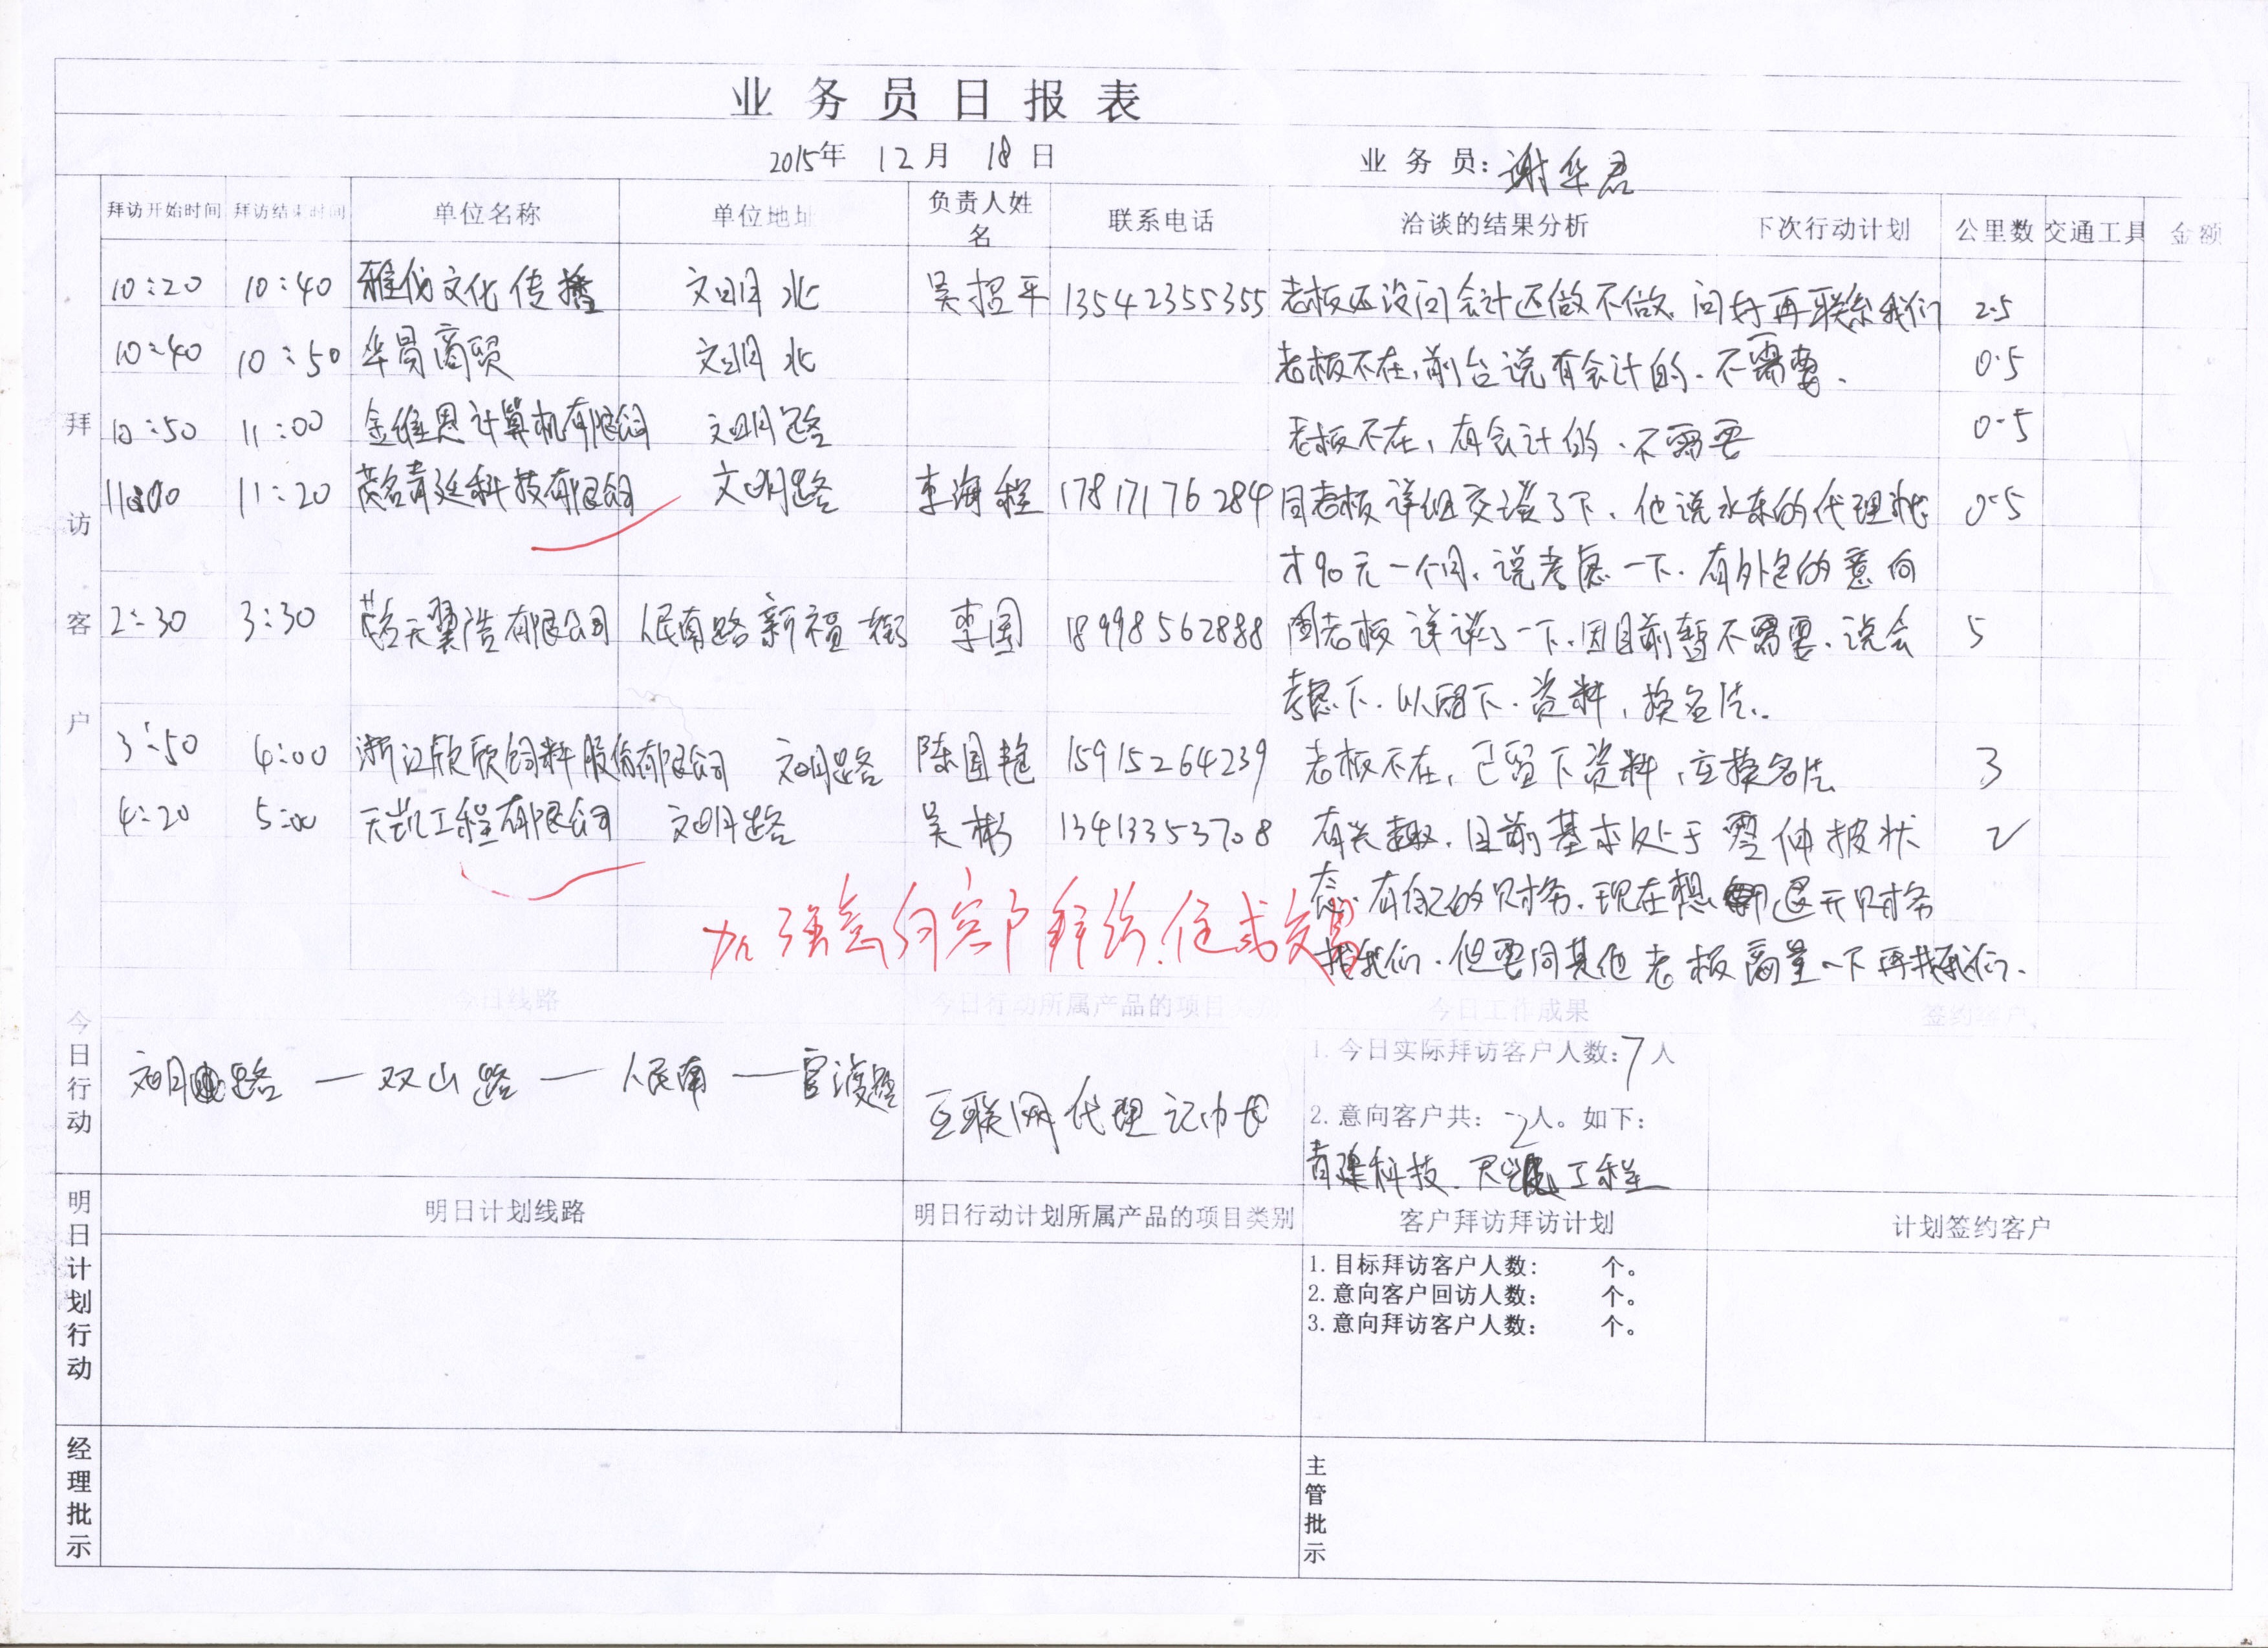 业务员日报表
2015年 12月 18日 业务员: 谢华君
拜访开始时间 拜访结束时间 单位名称 单位地址 负责人姓名 联系电话 洽谈的结果分析 下次行动计划 公里数 交通工具 金额
拜访客户
10:20 10:40 雅仪文化传播 文明北 吴招平 13542355355 老板还没问会计还做不做.问好再联系我们 2.5
10:40 10:50 华易商贸 文明北 老板不在,前台说有会计的.不需要. 0.5
10:50 11:00 金维恩计算机有限公司 文明路 老板不在,有会计的.不需要 0.5
11:00 11:20 茂名青廷科技有限公司 文明路 李海程 17817176284 同老板详细交谈了下.他说水东的代理 0.5
才90元一个月.说考虑一下.有外包的意向
2:30 3:30 茂名天翼浩有限公司 人民南路新福街 李国 18998562888 同老板详谈了一下.因目前暂不需要.说会 5
考虑下.以留下.资料,换名片.
3:50 4:00 浙江欣欣饲料股份有限公司 文明路 陈国艳 15915264239 老板不在,已留下资料,互换名片. 3
4:20 5:00 天凯工程有限公司 文明路 吴彬 13413353708 有兴趣.目前基本处于零申报状 2
态.有自己的财务.现在想退开财务
找我们.但要同其他老板商量一下再找我们.
加强意向客户拜访.促成交易
今日行动
今日线路 今日行动所属产品的项目类别 今日工作成果 签约客户
文明路—双山路—人民南—官渡路
互联网代理记帐
1.今日实际拜访客户人数:7人
2.意向客户共: 2人。如下:
青建科技.天凯工程
明日计划行动
明日计划线路 明日行动计划所属产品的项目类别 客户拜访拜访计划 计划签约客户
1.目标拜访客户人数: 个。
2.意向客户回访人数: 个。
3.意向拜访客户人数: 个。
经理批示
主管批示